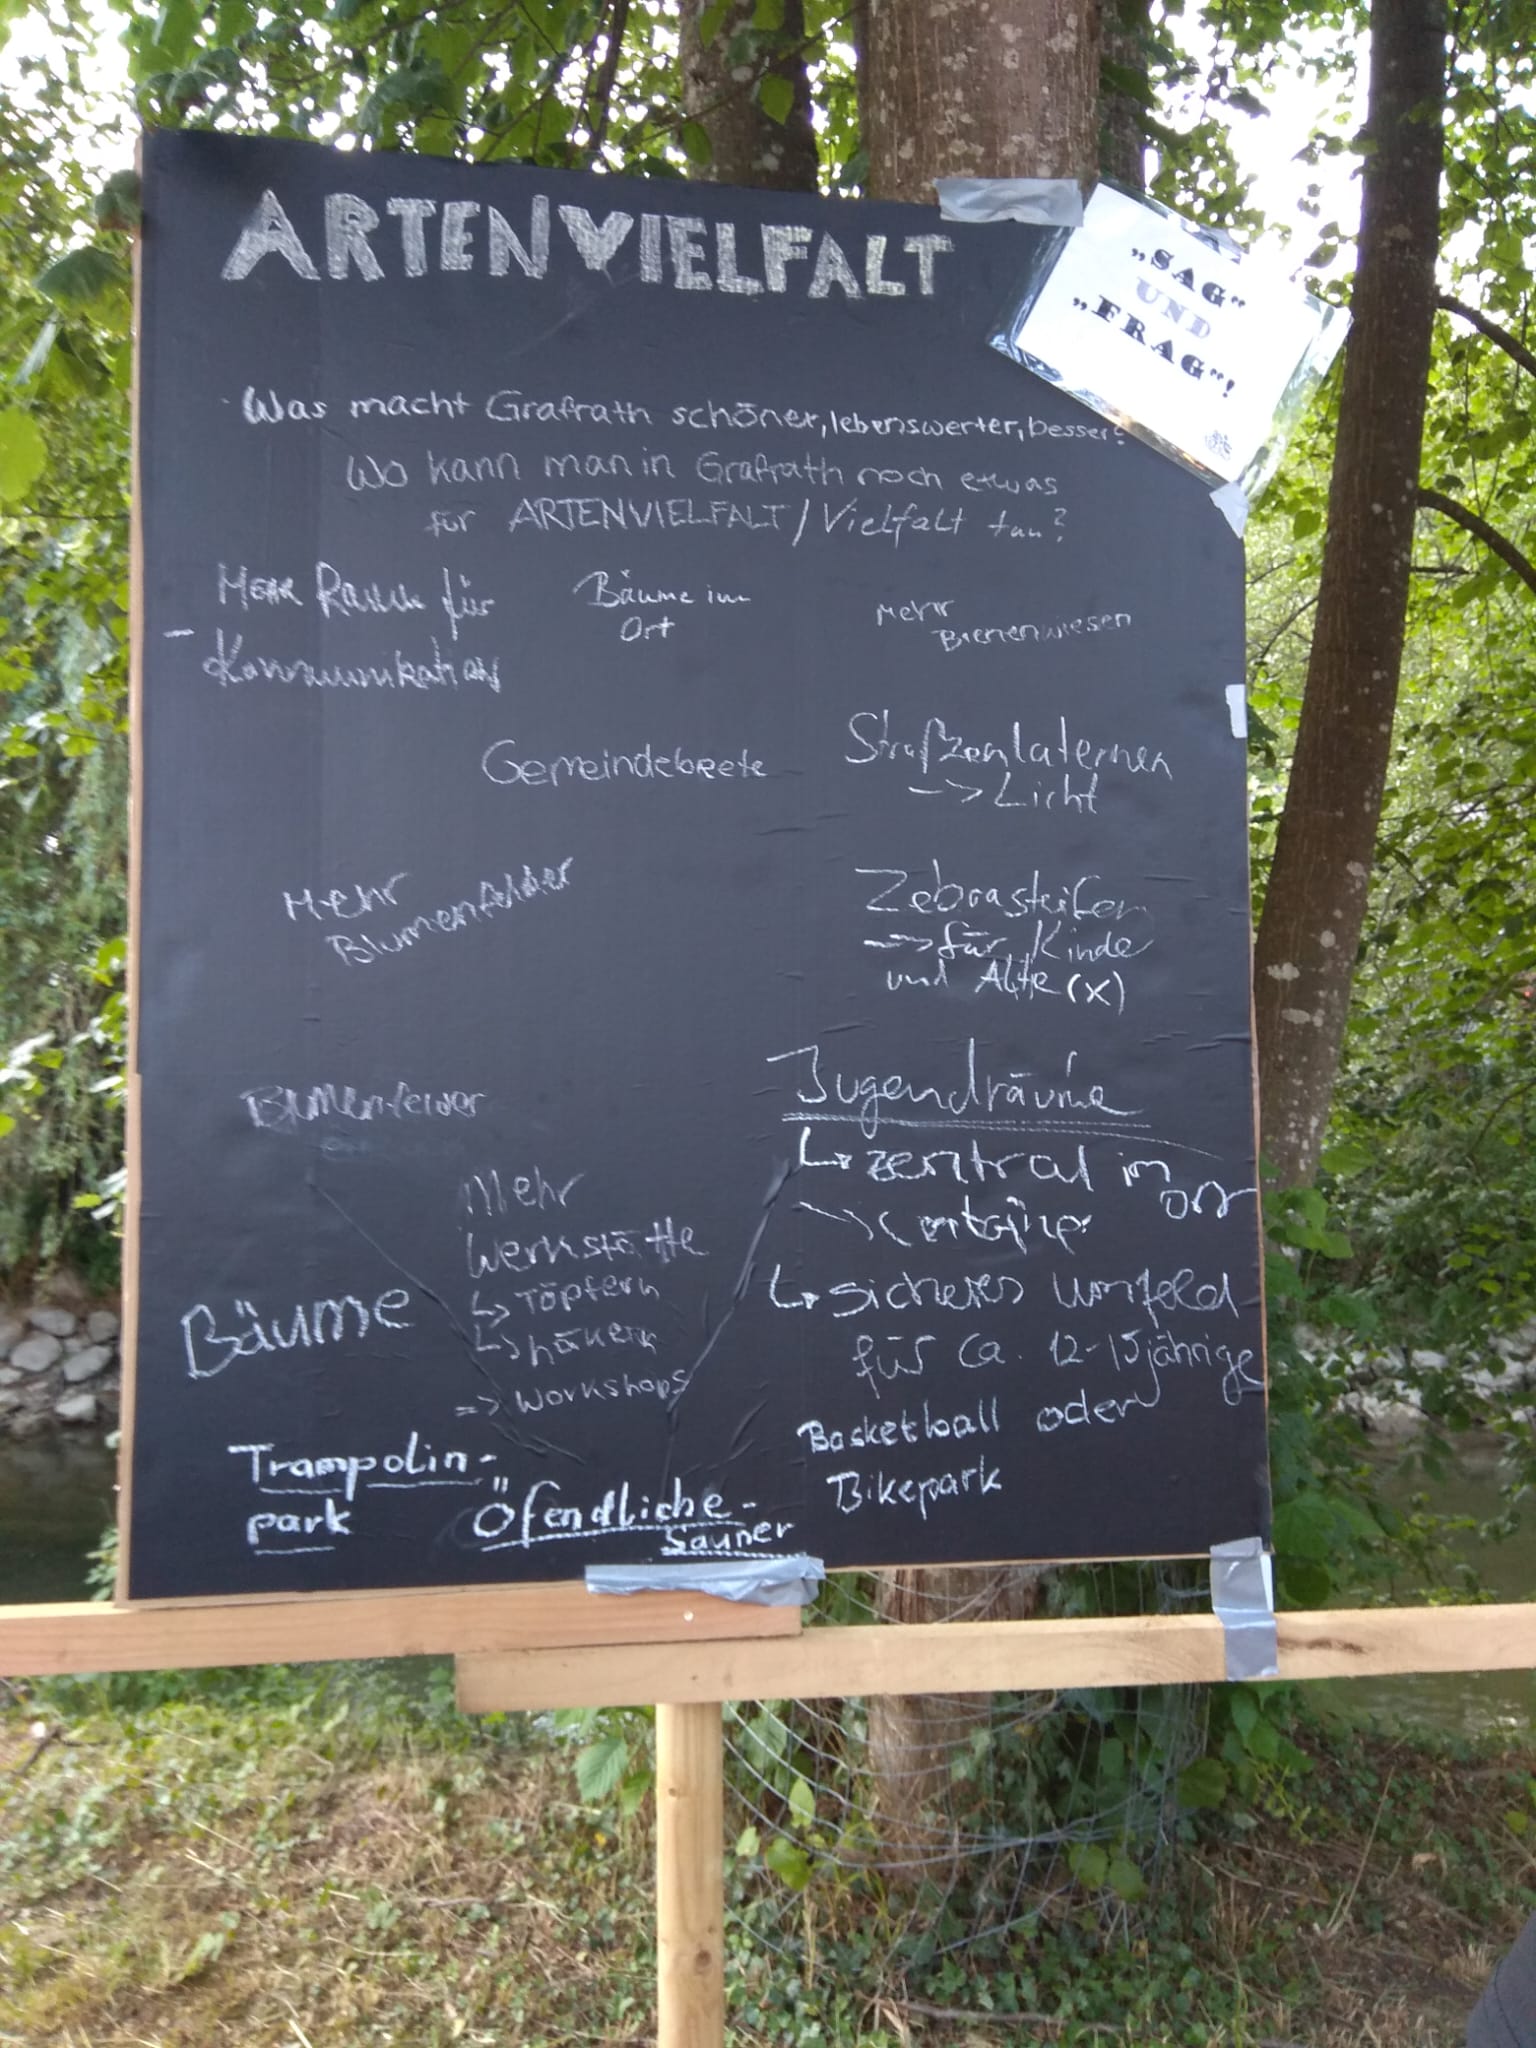 ARTENVIELFALT
„SAG“
UND
„FRAG“!
Was macht Grafrath schöner, lebenswerter, besser?
Wo kann man in Grafrath noch etwas
für ARTENVIELFALT / Vielfalt tun?
Mehr Raum für
Kommunikation
Bäume im
Ort
Mehr
Bienenwiesen
Gemeindebeete
Straßenlaternen
--> Licht
Mehr
Blumenfelder
Zebrasteifen
--> für Kinde
und Alte (x)
Blumenfelder
Jugendräume
↳ zentral im
Ort
↳ sicheres Umfeld
für ca. 12-15 jährige
Mehr
Werkstätte
↳ Töpfern
↳ häkern
=> Workshops
Bäume
Basketball oder
Bikepark
Trampolin-
park
Öfendliche-
Sauner